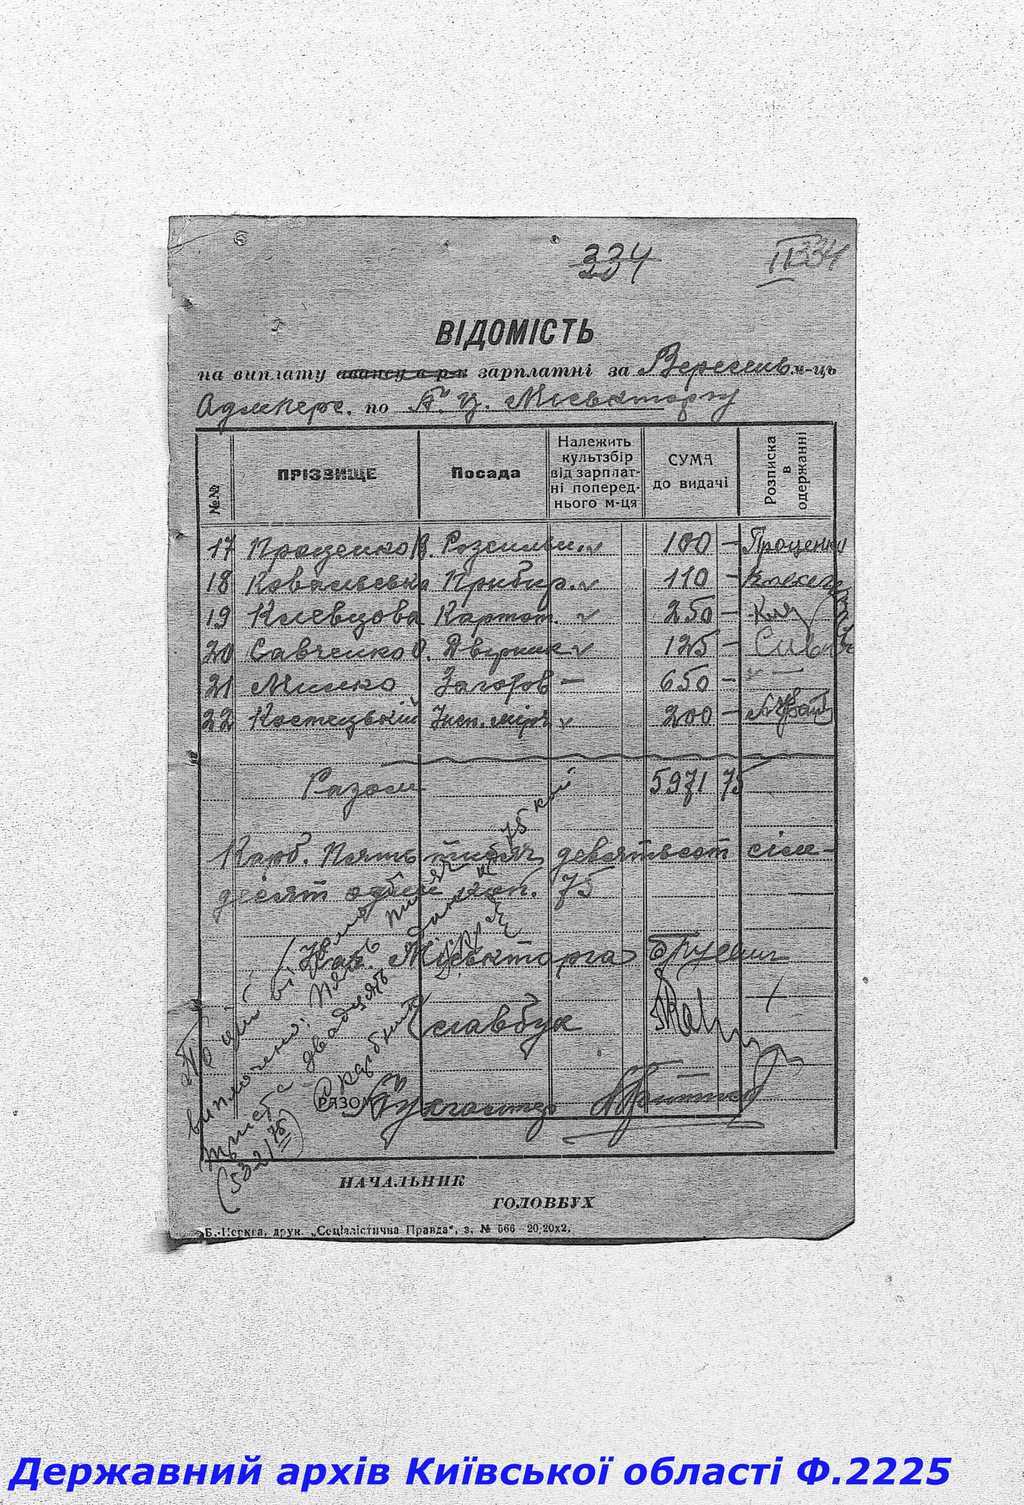 334
II 334
ВІДОМІСТЬ
на виплату авансу в р-к зарплатні за Вересень м-ць
Адмперс. по Б. Ц. Міськторгу
№№ ПРІЗВИЩЕ Посада Належить культзбір від зарплатні попереднього м-ця СУМА до видачі Розписка в одержанні
17 Проценко В. Розсильн. v 100 — Проценко
18 Ковальська Прибир. v 110 —
19 Клевцова Картот. v 250 — Клу
20 Савченко О. Двірник v 125 — Сав
21 Милко Заготов — 650 — " —
22 Костецький Інсп. мір v 200 —
Разом 5971 75
Карб. Пять тисяч девятьсот сім-
десят один коп. 75
Нач. Міськторга
Главбух
По цій відомості
виплочено: Пять тисяч
триста двадцять один
карбованц 75 коп
(5321/75)
РАЗОМ Бухгалтер
НАЧАЛЬНИК
ГОЛОВБУХ
Б.-Церква, друк. „Соціалістична Правда", з. № 666—20,20х2.
Державний архів Київської області Ф.2225